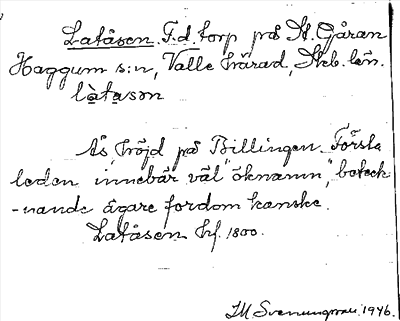 Latåsen. F.d. torp på St. Gåran
Haggum s:n, Valle härad, Skb. län.
làtason
Ås, höjd på Billingen. Första
leden innebär väl "öknamn", beteck
-nande ägare fordom kanske.
Latåsen hf. 1800.
IM Svenungsson 1946.